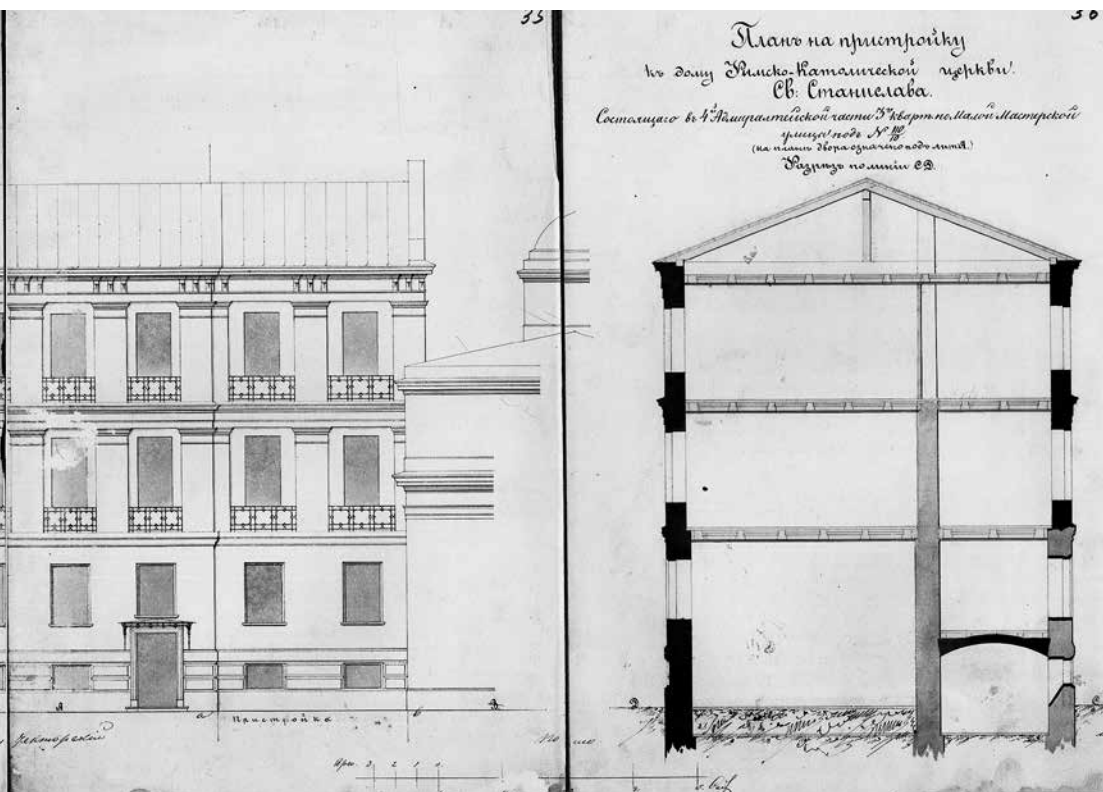 55
56
Планъ на пристройку
къ дому Римско-Католической церкви.
Св: Станислава.
Состоящаго въ 4й Адмиралтейской части 3го кварт. по Малой Мастерской
улице подъ № 110/10
(на планѣ двора означено подъ лит. А.)
Разрѣзъ по линіи СД.
А
а
Пристройка
в
В
Д
С
Арш. 3 2 1 0